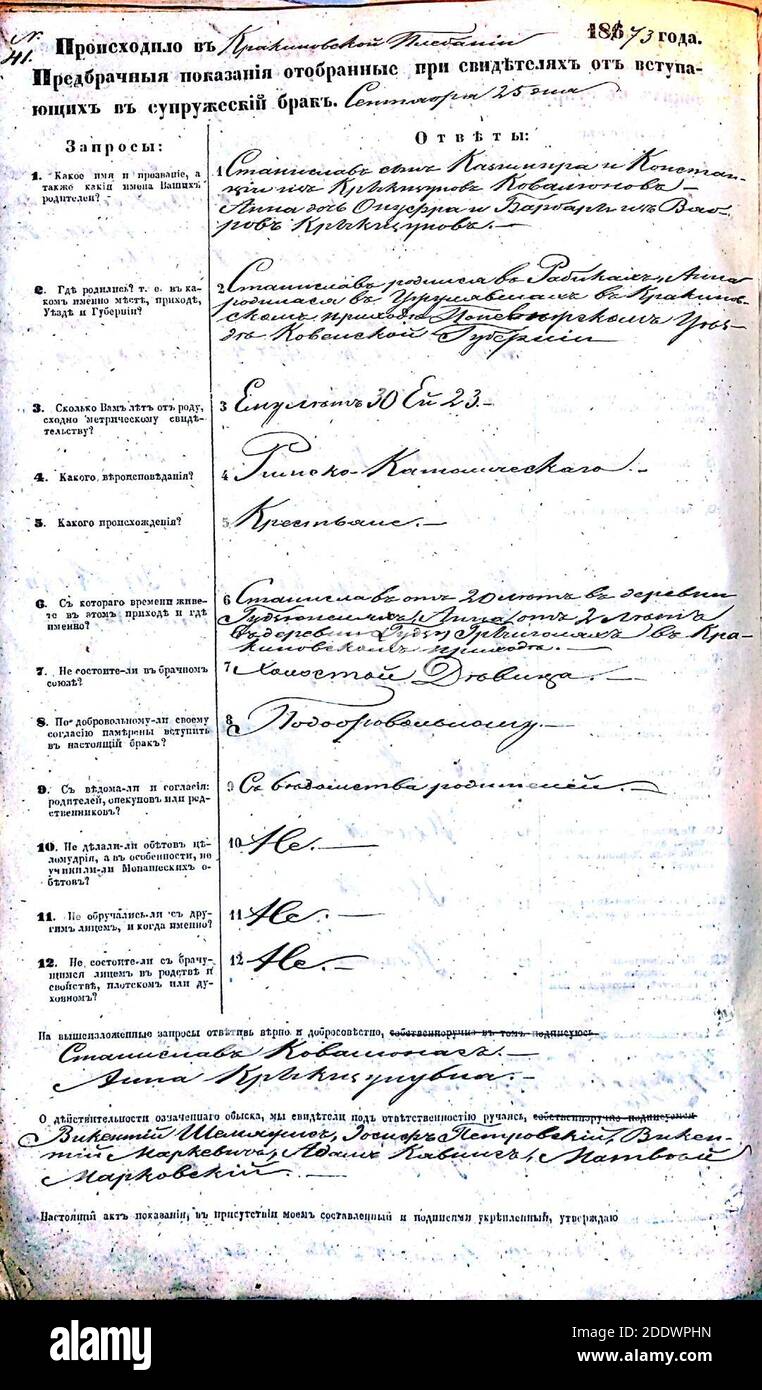 N. 41.
Происходило въ Кракиновской Плебаніи 1873 года.
Предбрачныя показанія отобранные при свидѣтеляхъ отъ вступа-
ющихъ въ супружескій бракъ. Сентября 25 дня
Запросы:
Отвѣты:
1. Какое имя и прозваніе, а
также какія имена Вашихъ
родителей?
1 Станиславъ сынъ Казимира и Констан-
ціи изъ Ковалюновъ
Анна дочь Онуфра и Барбары изъ
2. Гдѣ родились? т. е. въ ка-
комъ именно мѣстѣ, приходѣ,
Уѣздѣ и Губерніи?
2 Станиславъ родился въ Анна
родилася въ въ Кракинов-
скомъ приходѣ Уѣз-
дѣ Ковенской Губерніи
3. Сколько Вамъ лѣтъ отъ роду,
сходно метрическому свидѣ-
тельству?
3 Ему лѣтъ 30 Ей 23.
4. Какого вѣроисповѣданія?
4 Римско-Католическаго
5. Какого происхожденія?
5 Крестьяне.
6. Съ котораго времени живе-
те въ этомъ приходѣ и гдѣ
именно?
6 Станиславъ отъ 20 лѣтъ въ деревни
Анна отъ 2 лѣтъ
въ деревни въ Кра-
киновскомъ приходѣ.
7. Не состоите-ли въ брачном
союзѣ?
7 Холостой Дѣвица.
8. По добровольному-ли своему
согласію намѣрены вступить
въ настоящій бракъ?
8 Подобровольному.
9. Съ вѣдома-ли и согласія:
родителей, опекуновъ или род-
ственниковъ?
9 Съ вѣдомства родителей.
10. Не дѣлали-ли обѣтовъ цѣ-
ломудрія, а въ особенности, не
учинили-ли Монашескихъ о-
бѣтовъ?
10 Не.
11. Не обручались-ли съ дру-
гимъ лицемъ, и когда именно?
11 Не.
12. Не состоите-ли съ брачу-
щимся лицемъ въ родствѣ и
свойствѣ, плотскомъ или ду-
ховномъ?
12 Не.
На вышеизложенные запросы отвѣтивъ вѣрно и добросовѣстно, собственноручно въ томъ подписуюсь
Станиславъ Ковалюнасъ.
Анна
О дѣйствительности означеннаго обыска, мы свидѣтели подъ отвѣтственностію ручаясь, собственноручно подписуемся
Викентій Іосифъ Петровскій, Викен-
тій Маркевичъ, Адамъ Матвѣй
Марковскій.
Настоящій актъ показанія, въ присутствіи моемъ составленный и подписями укрѣпленный, утверждаю
alamy
Image ID: 2DDWPHN
www.alamy.com